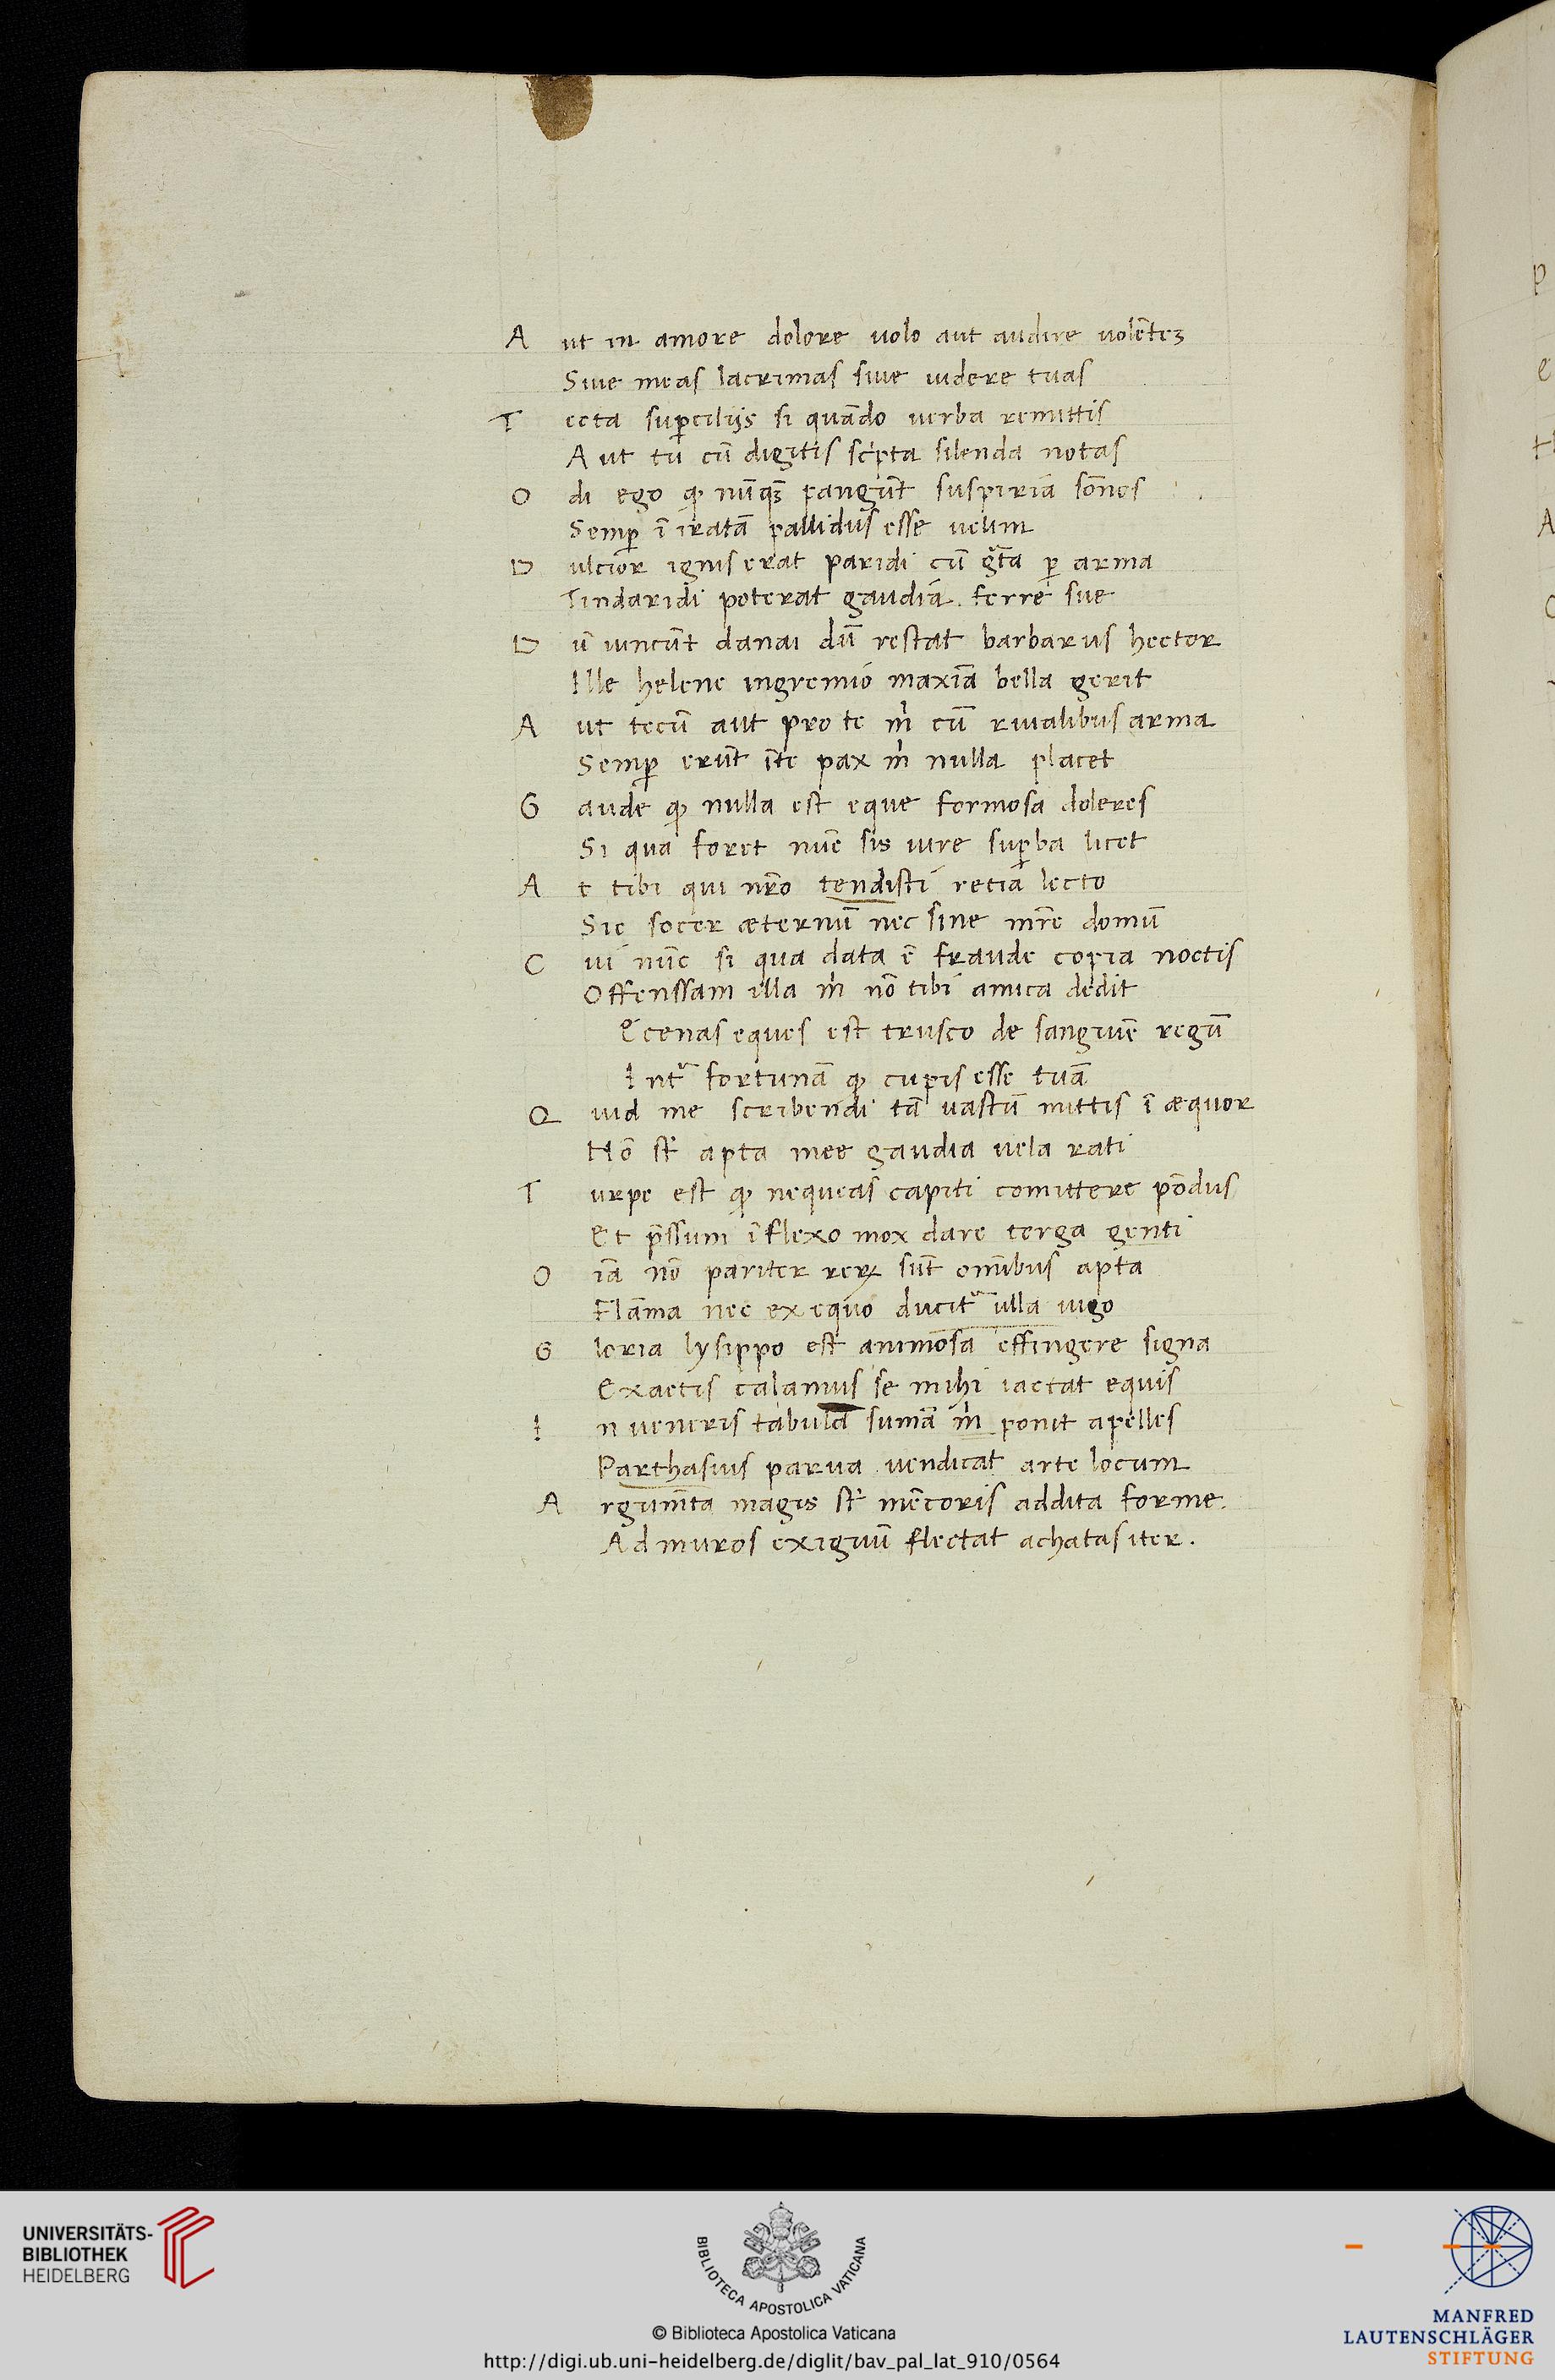 A ut in amore dolore uolo aut audire uolẽtez
Siue meas lacrimas siue uidere tuas
T ecta sup̱cilijs si quãdo uerba remittis
A ut tu cũ digitis sc̍pta silenda notas
O di ego ꝙ nũqꝫ pangũt suspiria sõnos
Semp̱ ĩ iratã pallidus esse uelim
D ulcior ignis erat paridi cũ gᵃta p̱ arma
Tindaridi poterat gaudia ferre sue
D ũ uincũt danai dũ restat barbarus hector
Ille helene ingremio maxĩa bella gerit
A ut tecũ aut pro te m̍ cũ riualibus arma
Semp̱ erũt ĩte pax m̍ nulla placet
G aude ꝙ nulla est eque formosa doleres
Si qua foret nũc sis iure sup̱ba licet
A t tibi qui nr̃o tendisti retia lecto
Sic socer æternũ nec sine mr̃e domũ
C ui nũc si qua data ẽ fraude copia noctis
Offenssam illa m̍ nõ tibi amica dedit
Ecenas eques est trusco de sanguĩe regũ
Intᵃ fortunã ꝙ cupis esse tuã
Q uid me scribendi tã uastũ mittis ĩ æquor
Nõ st̃ apta mee gaudia uela rati
T urpe est ꝙ nequeas capiti comittere põdus
Et p̃ssum ĩflexo mox dare terga genti
O ĩa nõ pariter reꝝ sũt omĩbus apta
Flãma nec ex equo ducitᵘ ulla iugo
G loria lysippo est animõsa effingere signa
Exactis calamus se mihi iactat equis
I n ueneris tabula sumã m̍ ponit apelles
Parthasius parua uendicat arte locum
A rgumẽta magis st̃ mẽtoris addita forme.
Ad muros exiguũ flectat achatas iter.
UNIVERSITÄTS-
BIBLIOTHEK
HEIDELBERG
BIBLIOTECA APOSTOLICA VATICANA
© Biblioteca Apostolica Vaticana
http://digi.ub.uni-heidelberg.de/diglit/bav_pal_lat_910/0564
MANFRED
LAUTENSCHLÄGER
STIFTUNG